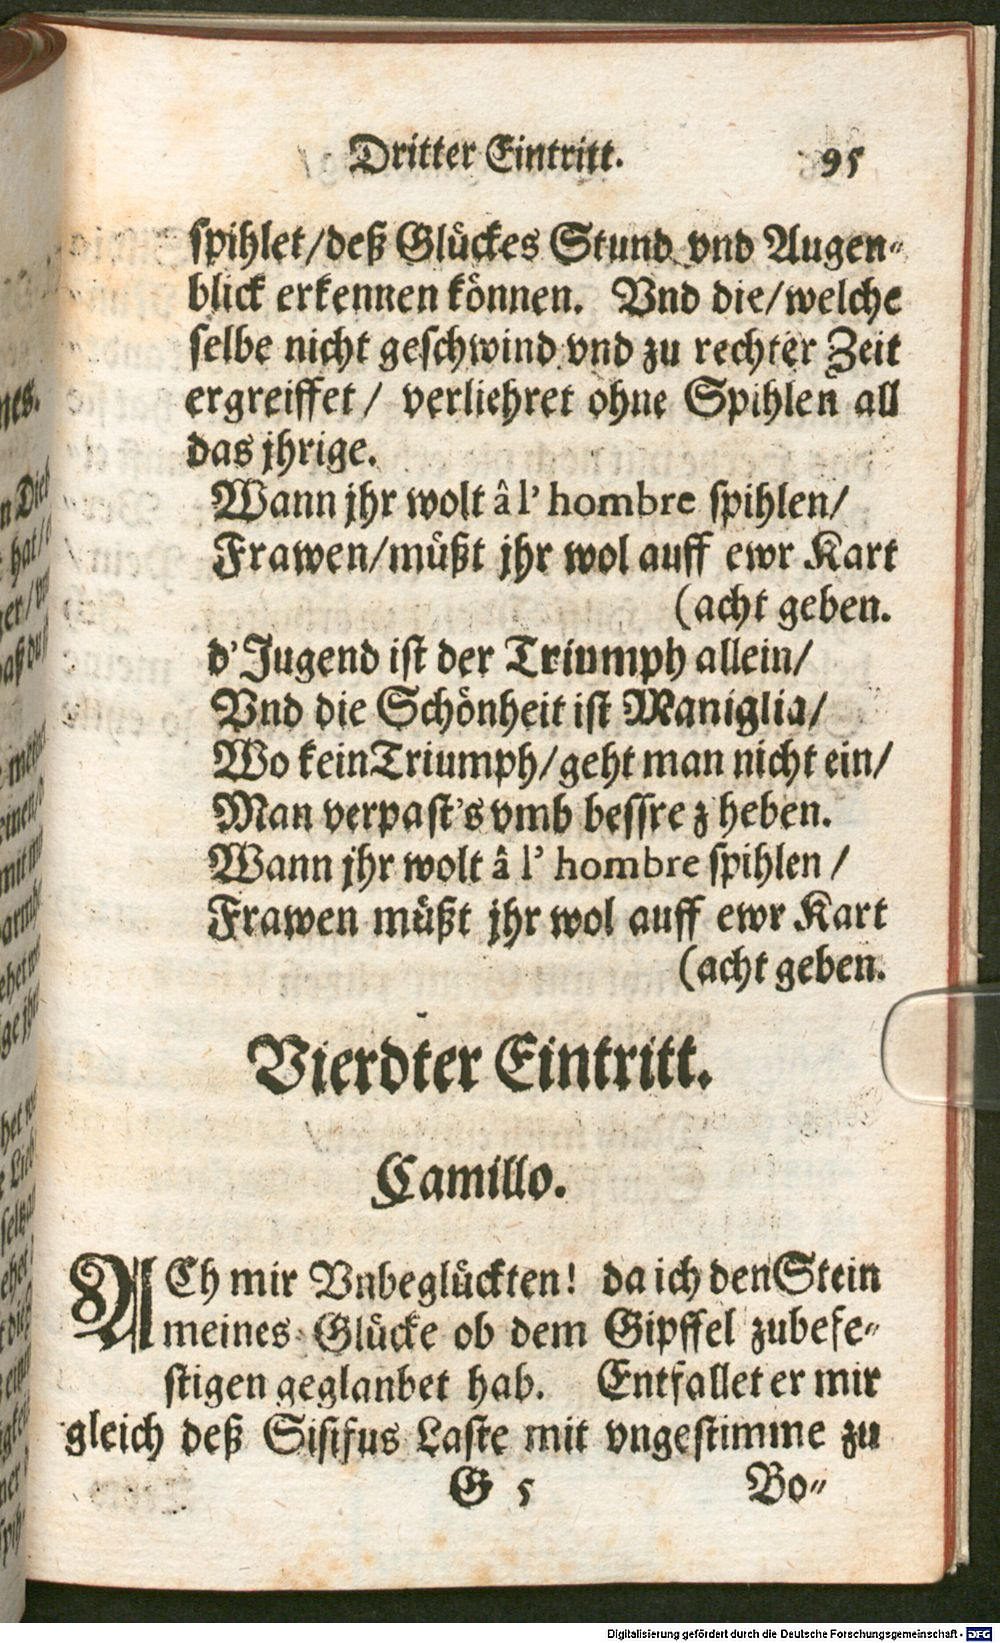 Dritter Eintritt. 95
spihlet/deß Glückes Stund vnd Augen-
blick erkennen können. Vnd die/welche
selbe nicht geschwind vnd zu rechter Zeit
ergreiffet/ verliehret ohne Spihlen all
das jhrige.
Wann jhr wolt â l' hombre spihlen/
Frawen/müßt jhr wol auff ewr Kart
(acht geben.
d'Jugend ist der Triumph allein/
Vnd die Schönheit ist Maniglia/
Wo kein Triumph/geht man nicht ein/
Man verpast's vmb bessre z heben.
Wann jhr wolt â l' hombre spihlen /
Frawen müßt jhr wol auff ewr Kart
(acht geben.
Vierdter Eintritt.
Camillo.
ACh mir Vnbeglückten! da ich den Stein
meines Glücke ob dem Gipffel zubefe-
stigen geglanbet hab. Entfallet er mir
gleich deß Sisifus Laste mit vngestimme zu
G 5 Bo-
Digitalisierung gefördert durch die Deutsche Forschungsgemeinschaft - DFG